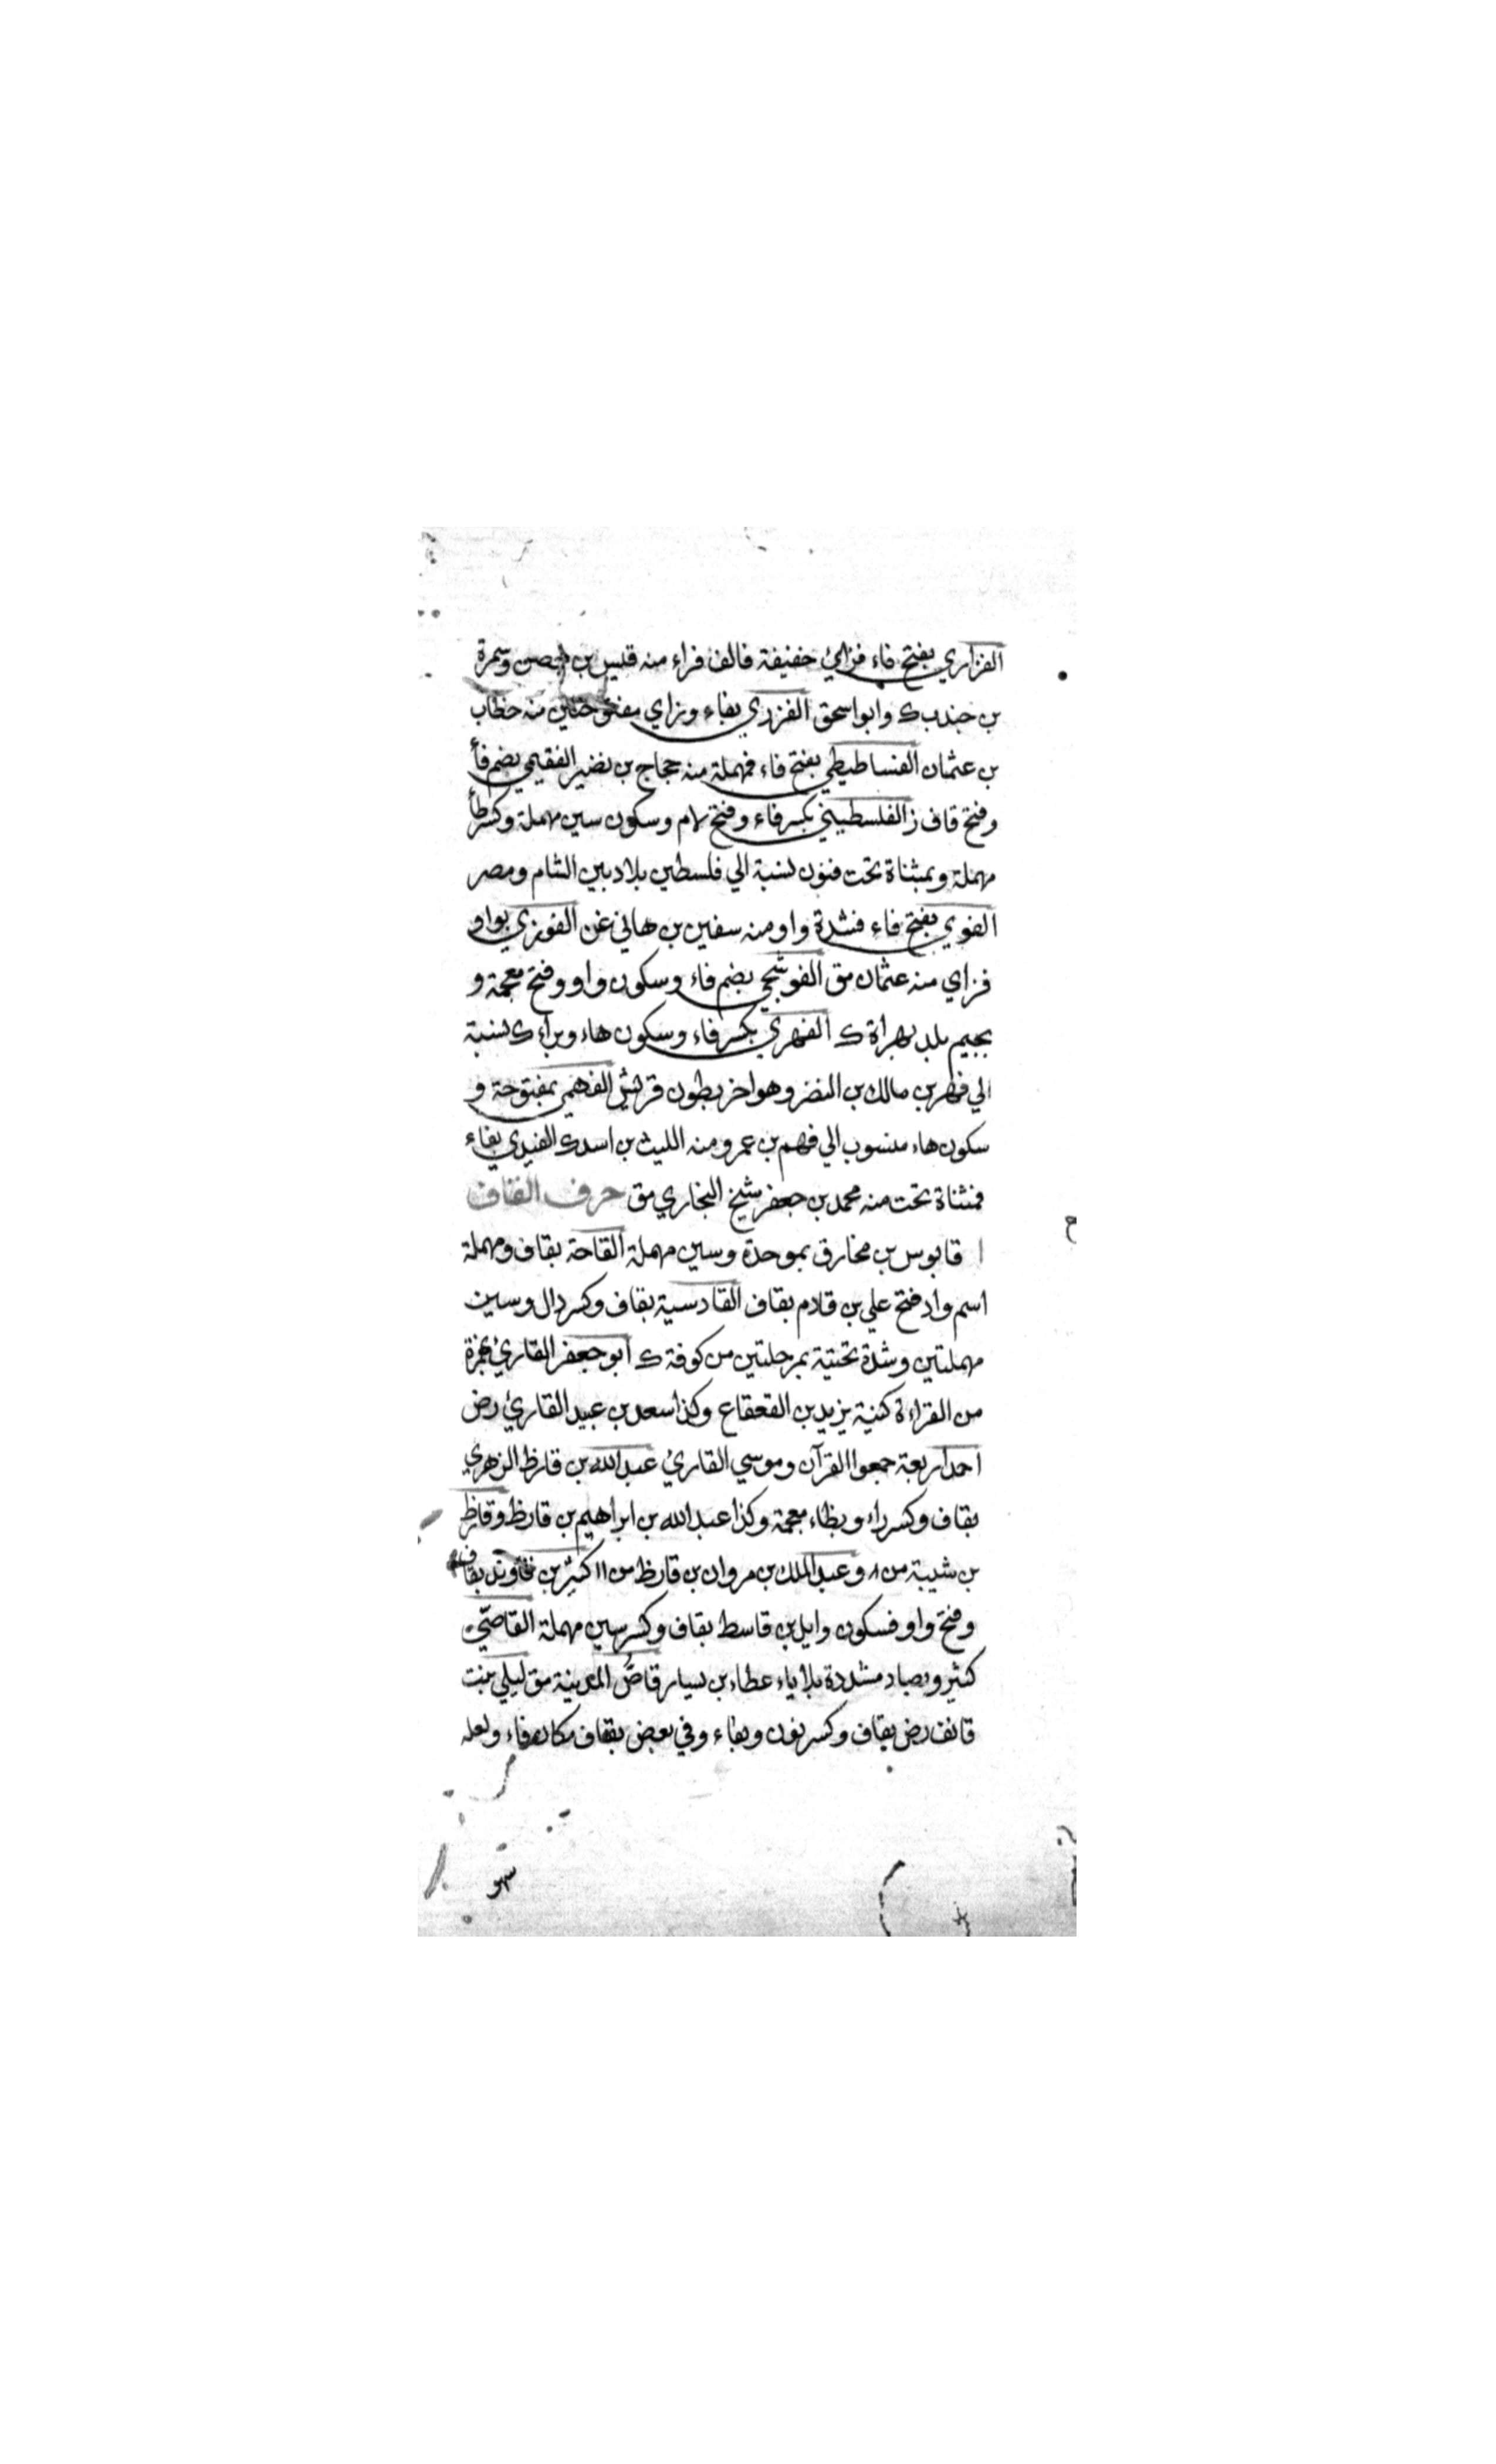 الفزاري بفتح فاء فزاي خفيفة فالف فراء منه قيس بن حصن وسمرة
بن جندب ك وابو اسحق الفزري بفاء وزاي مفتوحتين منه خطاب
بن عثمان الفساطيطي بفتح فاء فمهملة منه حجاج بن نصير الفقيمي بضم فأ
وفتح قاف ز الفلسطيني بكسر فاء وفتح لام وسكون سين مهملة وكسر طأ
مهملة وبمثناة تحت فنون نسبة الي فلسطين بلاد بين الشام ومصر
الفوي بفتح فاء فشدة واو منه سفين بن هاني غن الفوزي بواو
فزاي منه عثمان مق الفوشجي بضم فاء وسكون واو وفتح معجمة و
بجيم بلد بهراة ك الفهري بكسر فاء وسكون هاء وبراء ك نسبة
الي فهر بن مالك بن النضر وهو اخر بطون قريش الفهمي بمفتوحة و
سكون هاء منسوب الي فهم بن عمرو منه الليث بن اسد ك الفيدي بفاء
فمثناة تحت منه محمد بن جعفر شيخ البخاري مق حرف القاف
ا قابوس بن مخارق بموحدة وسين مهملة القاحة بقاف ومهملة
اسم واد فتح علي بن قادم بقاف القادسية بقاف وكسر دال وسين
مهملتين وشدة تحتية بمرحلتين من كوفة ك ابو جعفر القارئ بهمزة
من القراءة كنية يزيد بن القعقاع وكذا سعد بن عبيد القارئ رض
احد اربعة جمعوا القرآن وموسي القارئ عبد الله بن قارظ الزهري
بقاف وكسر راء وبظاء معجمة وكذا عبد الله بن ابراهيم بن قارظ وقارظ
بن شيبة من ٨ وعبد الملك بن مروان بن قارظ من ١١ كثير بن قاوند بقاف
وفتح واو فسكون وايل بن قاسط بقاف وكسر سين مهملة القاصّ
كثير وبصاد مشددة بلا ياء عطاء بن يسار قاصّ المدينة مق ليلي بنت
قانف رض بقاف وكسر نون وبفاء وفي بعض بقاف مكان فاء ولعله